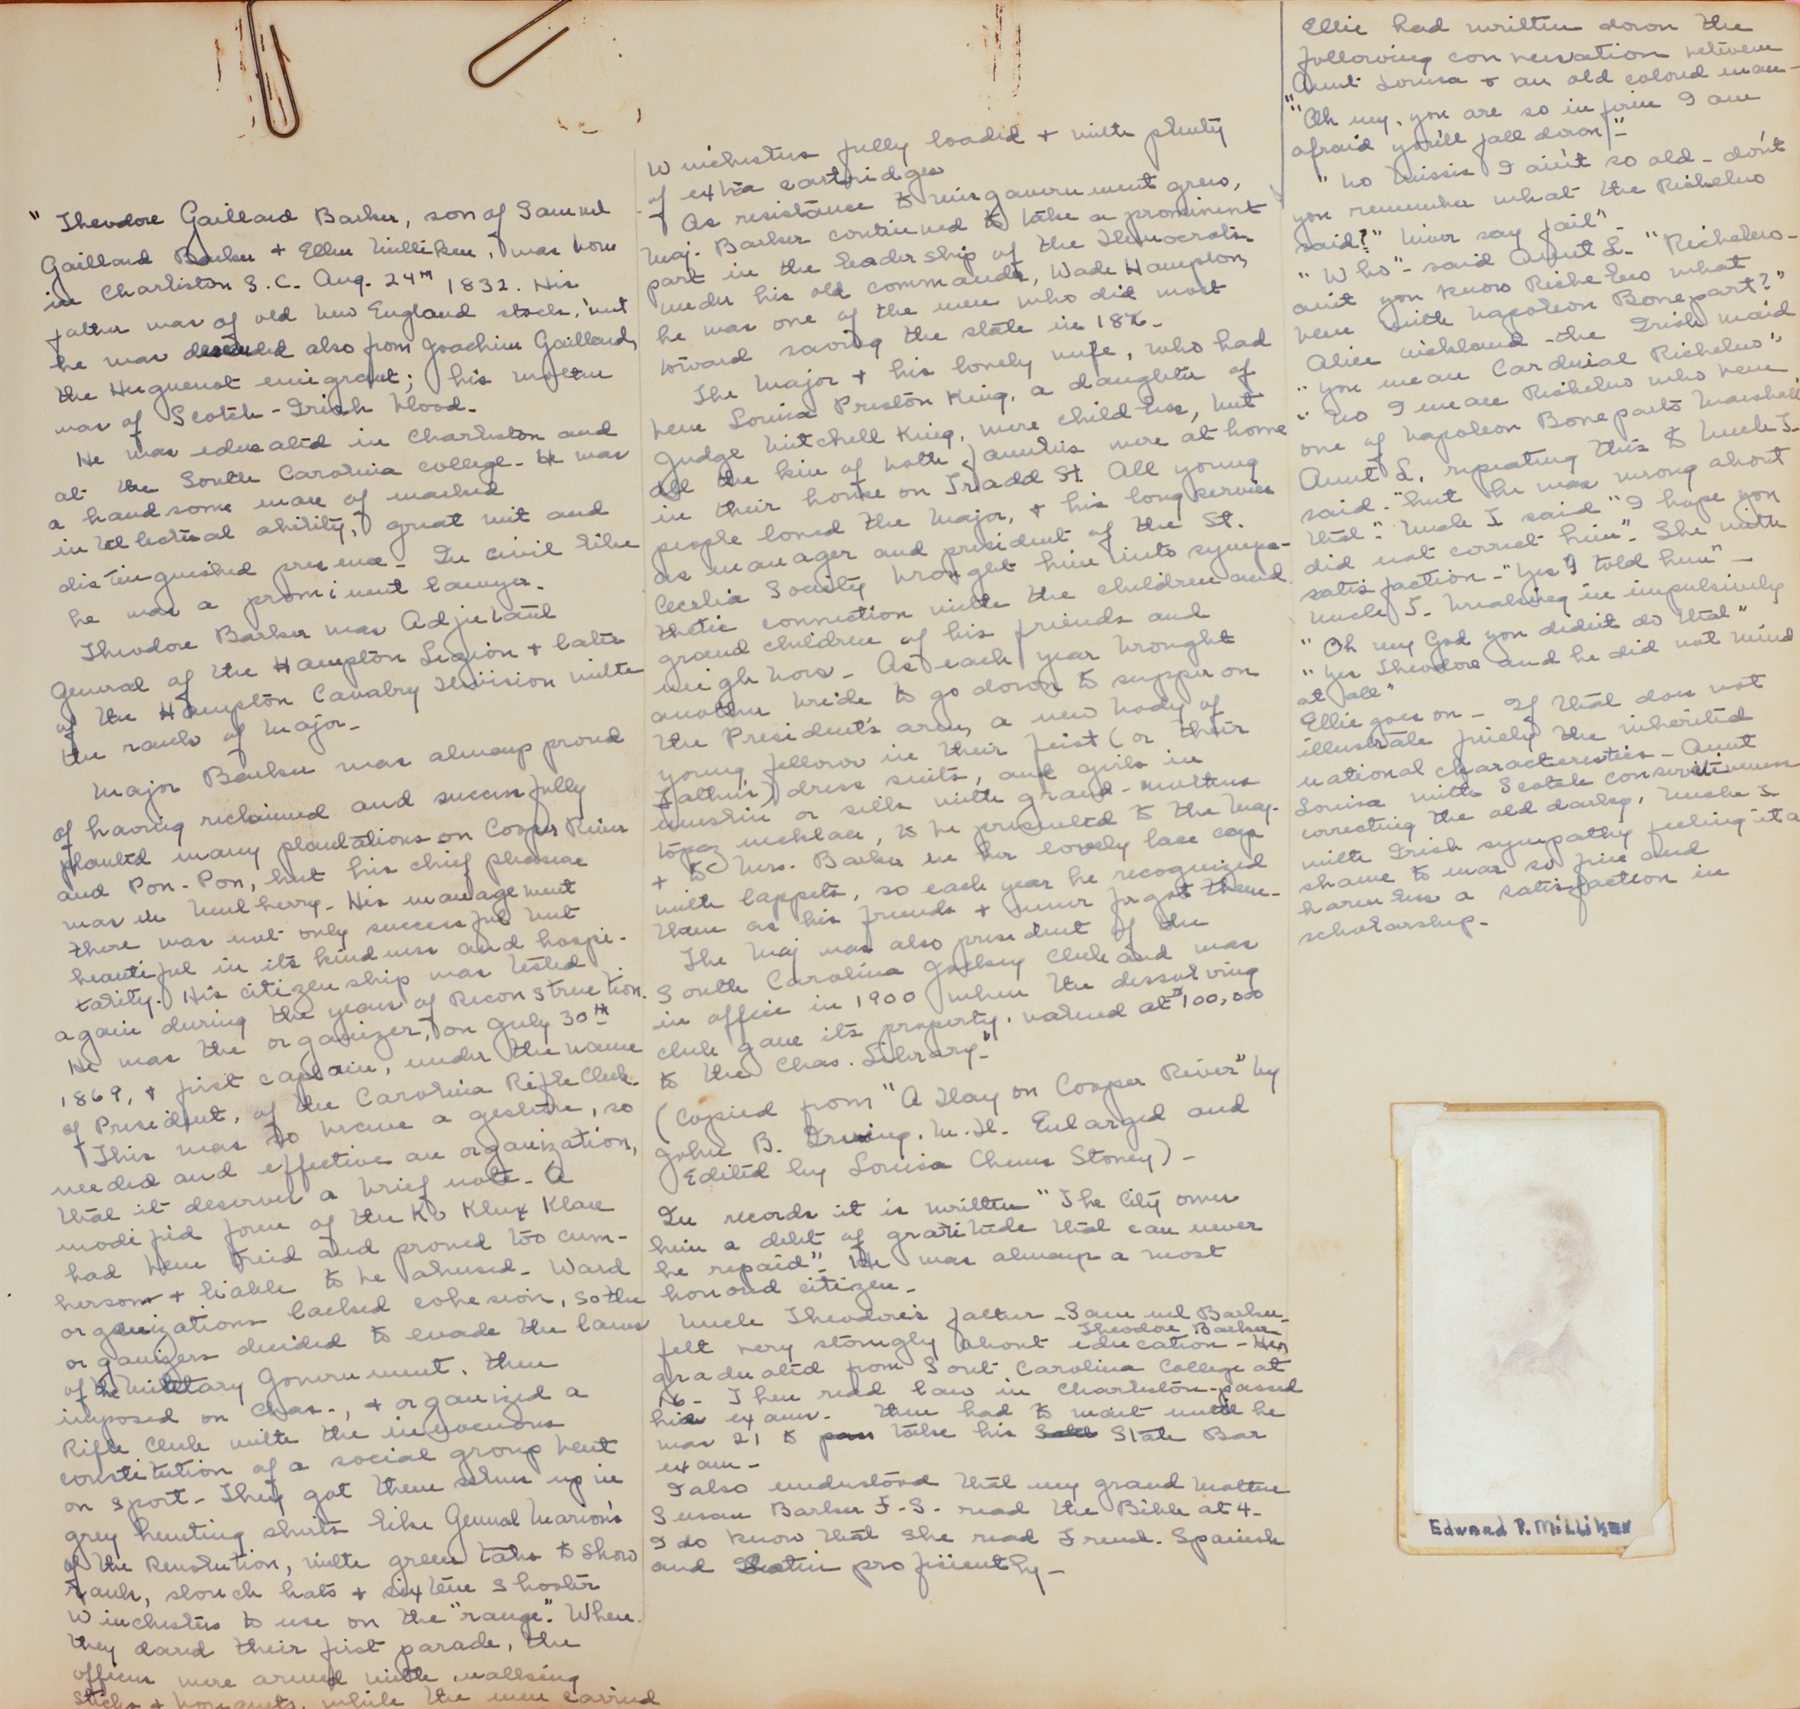 " Theodore Gaillard Barker, son of Samuel
Gaillard Barker + Ellen Milliken, was born
in Charleston S.C. Aug. 24th 1832. His
father was of old New England stock, but
he was descended also from Joachim Gaillard,
the Huguenot emigrant; his mother
was of Scotch-Irish blood.
He was educated in Charleston and
at the South Carolina College. He was
a handsome man of marked
intellectual ability, great wit and
distinguished presence. In civil life
he was a prominent lawyer.
Theodore Barker was Adjutant
General of the Hampton Legion + later
of the Hampton Cavalry Division with
the rank of Major.
Major Barker was always proud
of having reclaimed and successfully
planted many plantations on Cooper River
and Pon-Pon, but his chief pleasure
was in Mulberry. His management
there was not only successful but
beautiful in its kindness and hospi-
tality. His citizenship was tested
again during the years of Reconstruction.
He was the organizer, on July 30th
1869, + first captain, under the name
of President, of the Carolina Rifle Club.
This was so brave a gesture, so
needed and effective an organization,
that it deserves a brief note. A
modified form of the Ku Klux Klan
had been tried and proved too cum-
bersome + liable to be abused. Ward
organizations lacked cohesion, so the
organizers decided to evade the laws
of the Military Government, then
imposed on Chas., + organized a
Rifle Club with the innocuous
constitution of a social group bent
on sport. They got themselves up in
grey hunting shirts like General Marion's
of the Revolution, with green tabs to show
rank, slouch hats + sixteen shooter
Winchesters to use on the "range". When
they dared their first parade, the
officers were armed with walking
sticks + bouquets, while the men carried
Winchesters fully loaded + with plenty
of extra cartridges
As resistance to misgovernment grew,
Maj. Barker continued to take a prominent
part in the leadership of the Democrats
under his old commander, Wade Hampton,
he was one of the men who did most
toward saving the state in 1876.
The Major + his lovely wife, who had
been Louisa Preston King, a daughter of
Judge Mitchell King, were childless, but
all the kin of both families were at home
in their house on Tradd St. All young
people loved the Major, + his long service
as manager and president of the St.
Cecelia Society brought him into sympa-
thetic connection with the children and
grand children of his friends and
neighbors. As each year brought
another bride to go down to supper on
the President's arm, a new body of
young fellows in their first (or their
father's) dress suits, and girls in
muslin or silk with grand-mothers
topaz necklace, to be presented to the Maj.
+ to Mrs. Barker in her lovely lace cap
with lappets, so each year he recognized
them as his friends + never forgot them.
The Maj was also president of the
South Carolina Jockey Club and was
in office in 1900 when the dissolving
club gave its property, valued at $100,000
to the Chas. Library."
(Copied from "A Day on Cooper River" by
John B. Irving, M.D. Enlarged and
Edited by Louisa Cheves Stoney) -
In records it is written "The City owes
him a debt of gratitude that can never
be repaid". He was always a most
honored citizen.
Uncle Theodore's father - Samuel Barker -
felt very strongly about education - Theodore Barker
graduated from Sout Carolina College at
16. Then read law in Charleston - passed
his exams. Then had to wait until he
was 21 to take his State Bar
exam -
I also understood that my grand mother
Susan Barker F.S. read the Bible at 4.
I do know that she read French. Spanish
and Latin proficiently -
Ellie had written down the
following conversation between
Aunt Louisa + an old colored man -
"Oh my, you are so infirm I am
afraid you'll fall down" -
"No Missis I ain't so old - don't
you remember what the Richelew
said?" Never say fail" -
"Who" - said Aunt L. "Richelew -
aint you know Richelew what
been with Napoleon Bonepart?"
Alice Nickland - the Irish maid
"you mean Cardinal Richelew"
"No I mean Richelew who been
one of Napoleon Boneparts Marshall
Aunt L. repeating this to Uncle T.
said - "but he was wrong about
that". Uncle T said "I hope you
did not correct him". She with
satisfaction - "Yes I told him" -
Uncle T. breaking in impulsively
"Oh my God you didn't do that"
"Yes Theodore and he did not mind
at all"
Ellie goes on - If that does not
illustrate finely the inherited
national characteristics - Aunt
Louisa with Scotch conservativeness
correcting the old darkey, Uncle T
with Irish sympathy feeling it a
shame to mar so fine and
harmless a satisfaction in
scholarship. -
Edward P. Milliken